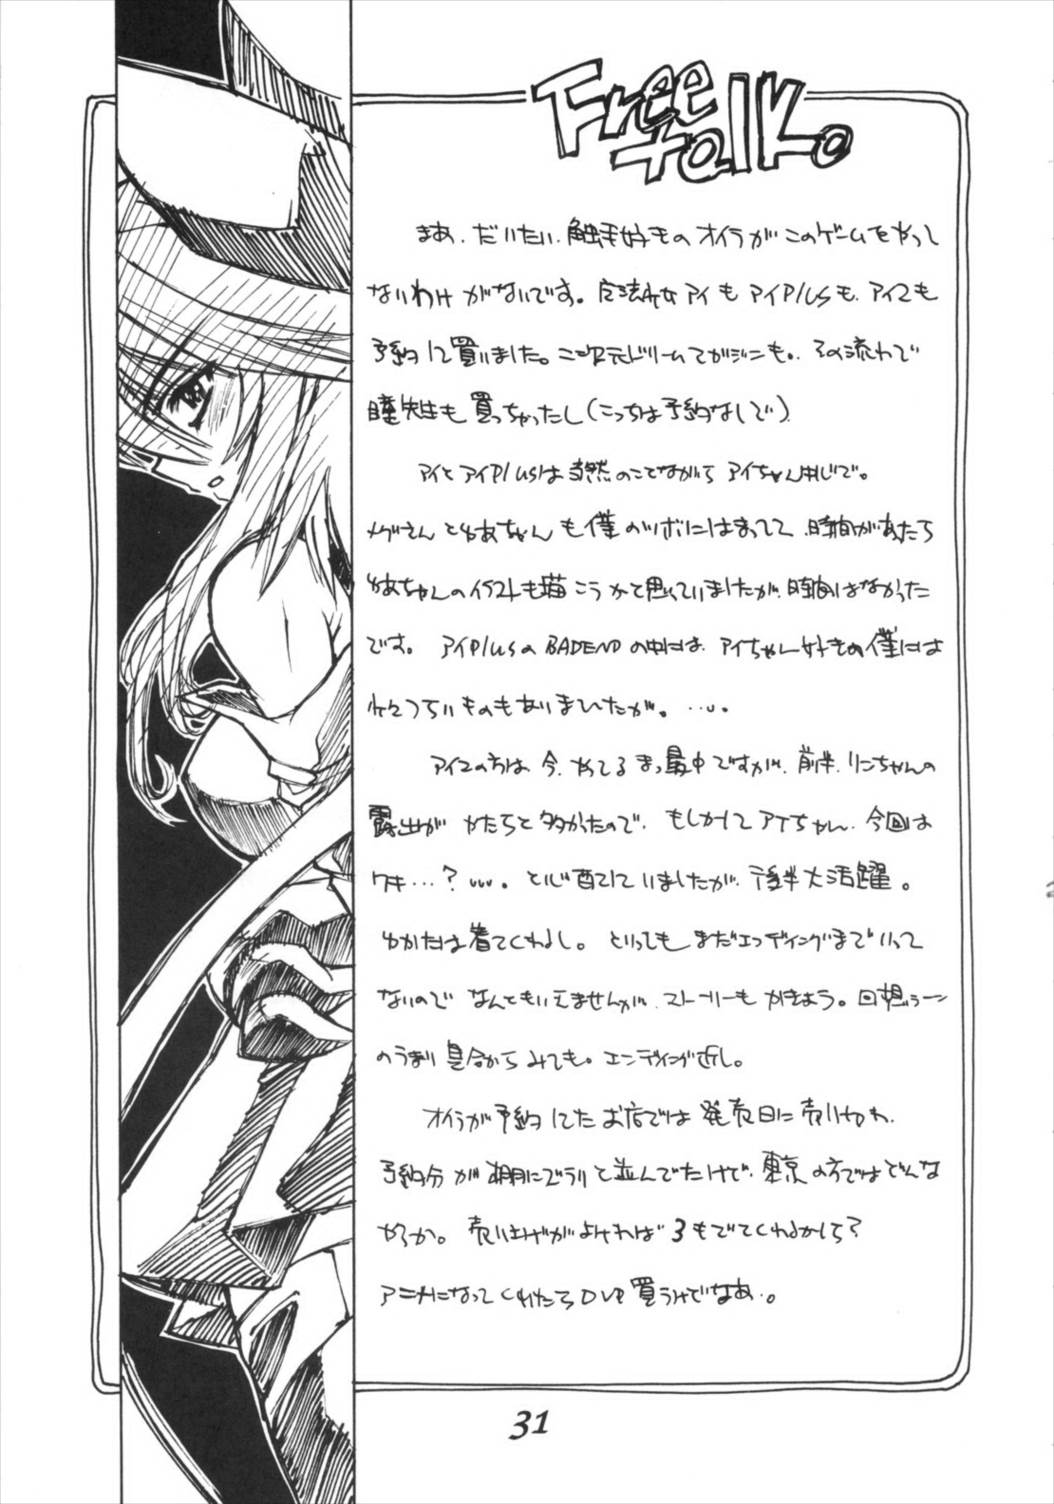 Free
talk。
まあ、だいたい、触手好きのオイラがこのゲームをやって
ないわけがないです。魔法少女アイもアイPlusも、アイ2も
予約して買いました。二次元ドリームマガジンも。その流れで
瞳先生も買っちゃったし(こっちは予約なしで)
アイとアイPlusは当然のことながらアイちゃん
メグさんとゆあちゃんも僕のツボにはまってて、時間があたら
ゆあちゃんのイラストも描こうかて思っていましたが、時間はなかった
です。アイPlusのBADENDの中には、アイちゃん好きの僕には
つらいものもありましたが。…。
アイ2の方は、今、やてるまっ最中ですが、前半、りんちゃんの
露出がかたちと多かったので、もしかしてアイちゃん、今回は
ワキ…?…。と心配していましたが、後半大活躍。
ゆかたは着てくれるし。といってもまだエンディングまでいって
ないので なんともいえませんが、ストーリーもかきよう。回想シーン
のうまり具合からみても。エンディング近し。
オイラが予約してたお店では発売日に売りきれ、
予約分が棚にズラリと並んでたけど、東京の方ではどんな
かろか。売り上げがよければ3もでてくれるかして?
アニメになってくれたらDVD買うけどなあ。
31